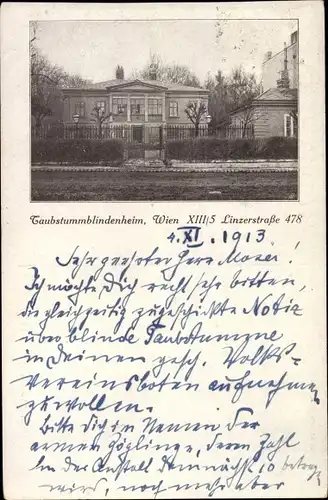 Taubstummblindenheim, Wien XIII/5 Linzerstraße 478
4. XI. 1913.
Sehr geehrter Herr Moser!
Ich möchte Dich recht sehr bitten,
die gleichzeitig zugeschickte Notiz
über blinde Taubstumme
in Deinen gesch. Volks-
vereinsboten aufnehmen
zu wollen.
Bitte Dich im Namen der
armen Zöglinge, deren Zahl
in der Anstalt demnächst 10 betragen
wird, noch mehr aber